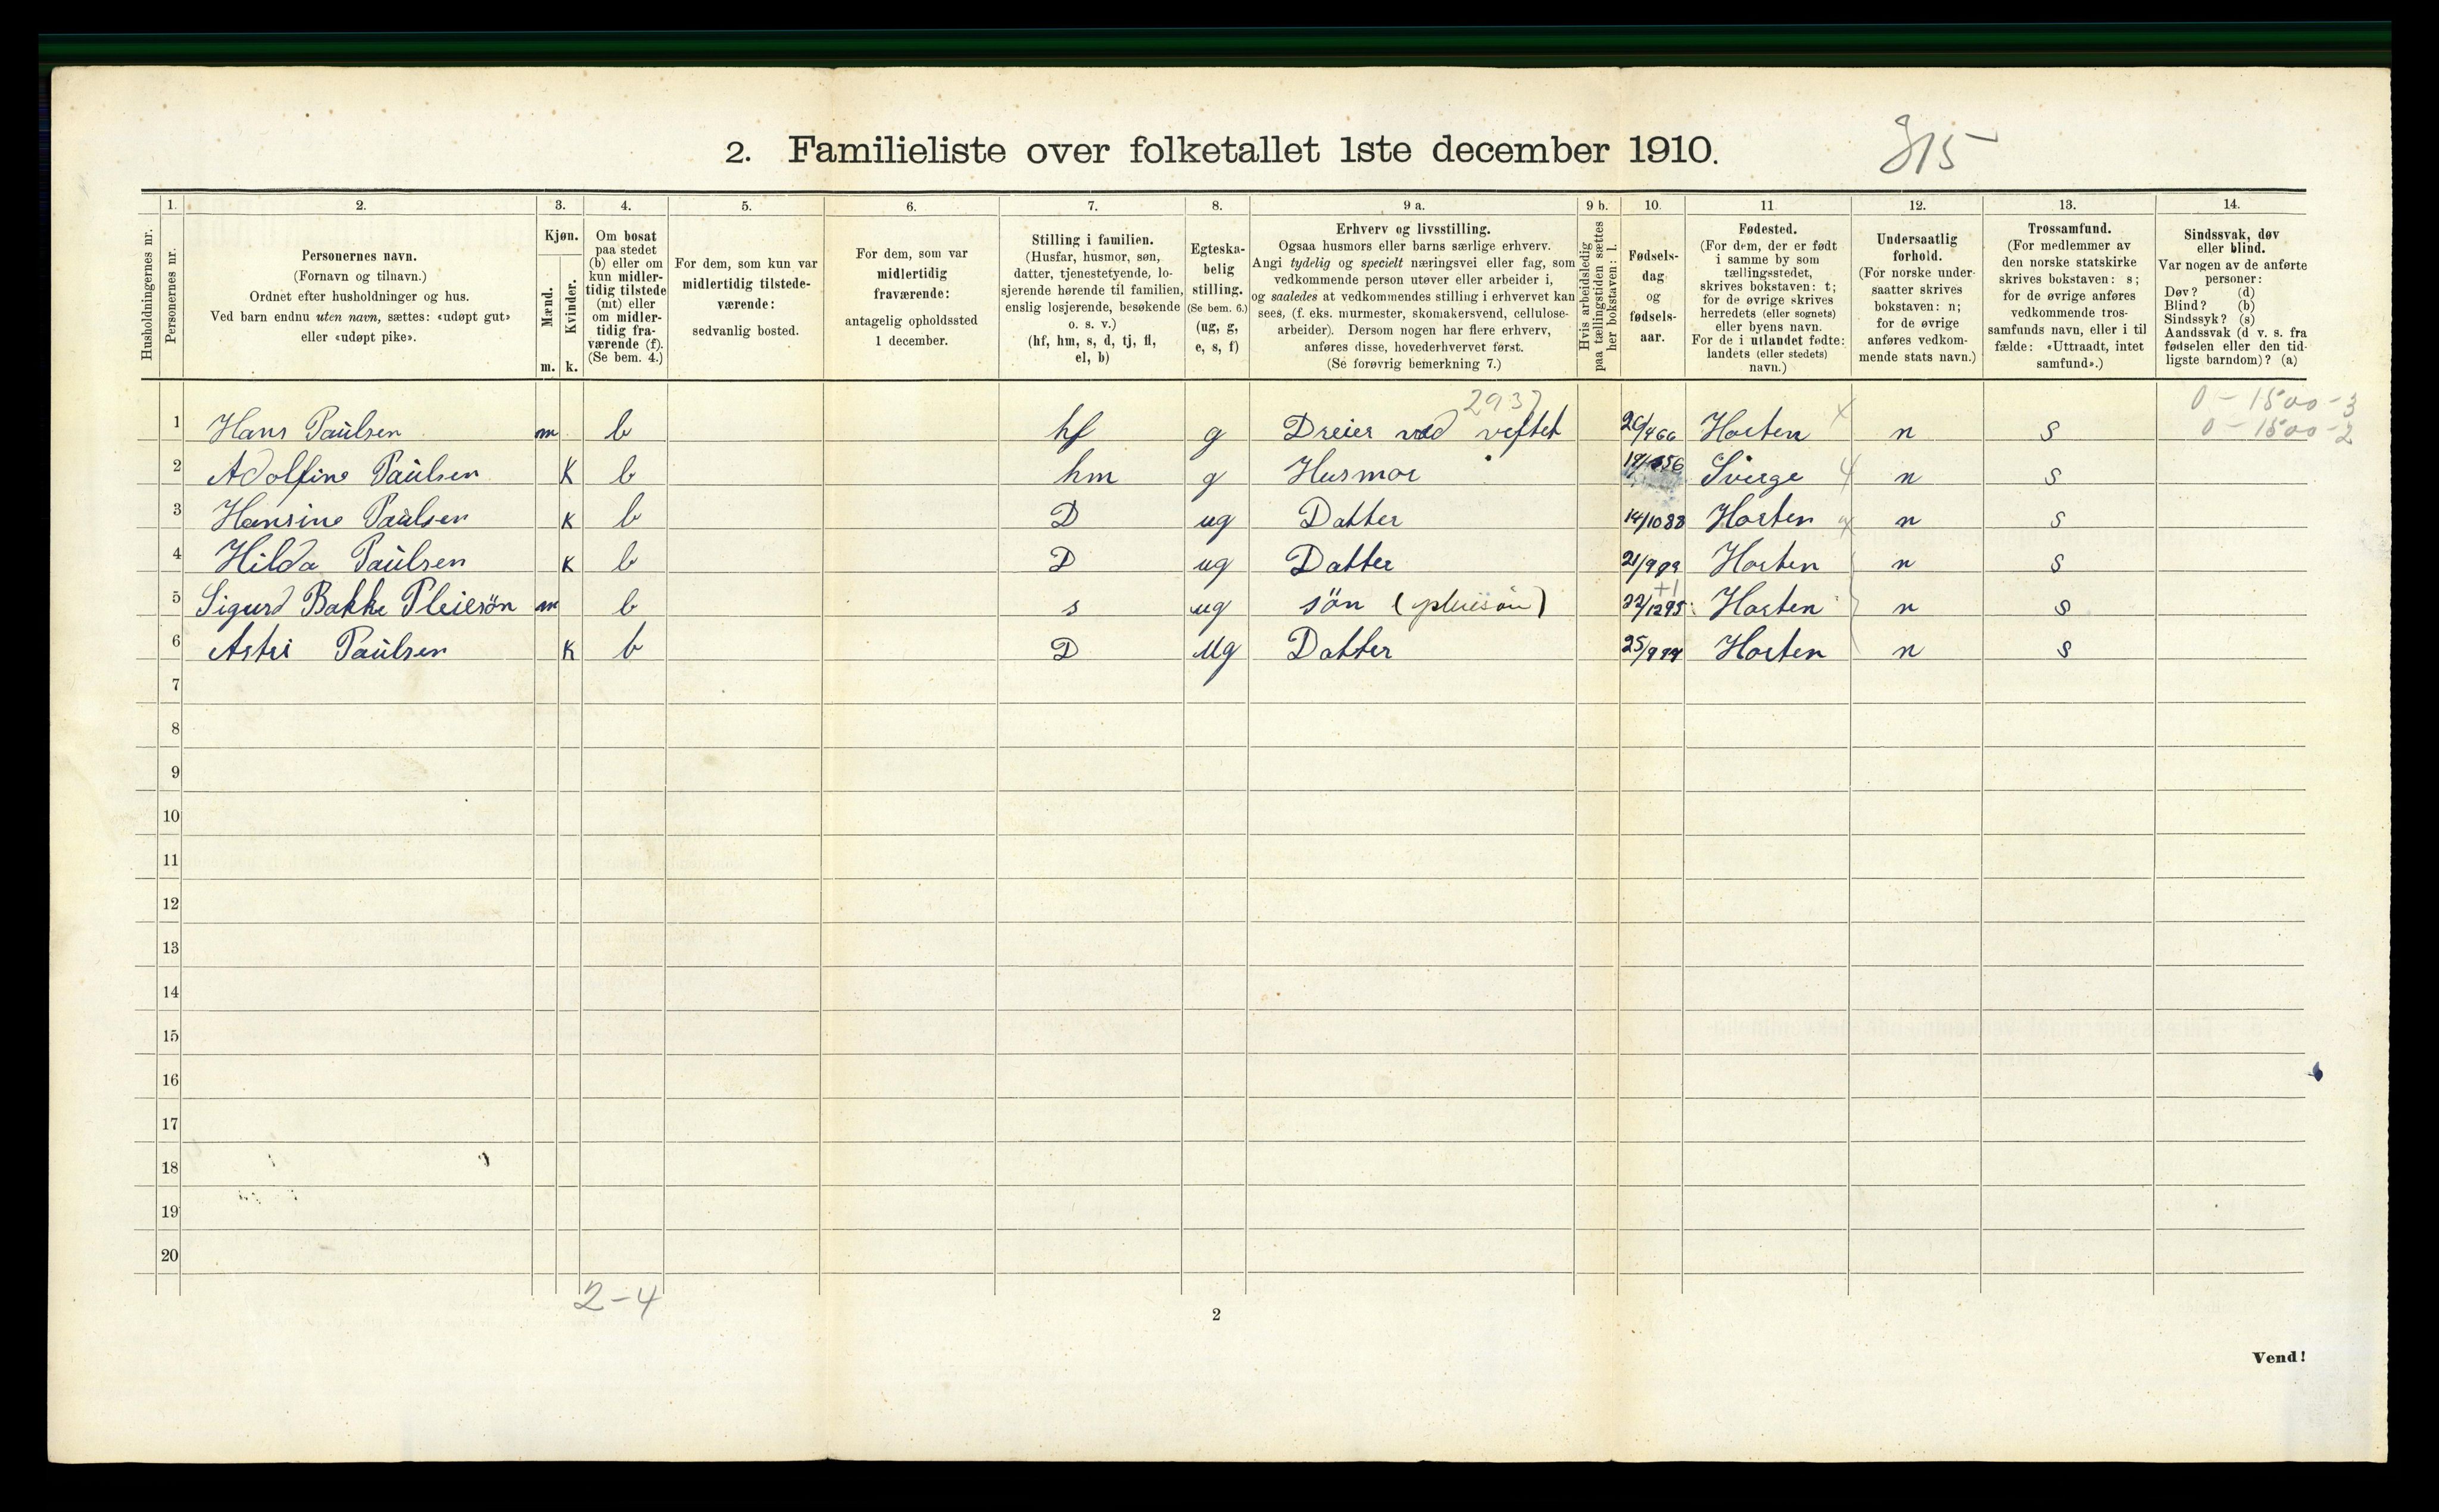 2. Familieliste over folketallet 1ste december 1910.
315
Husholdningernes nr.
1. Personernes nr.
2. Personernes navn. (Fornavn og tilnavn.) Ordnet efter husholdninger og hus. Ved barn endnu uten navn, sættes: «udøpt gut» eller «udøpt pike».
3. Kjøn. Mænd. m. Kvinder. k.
4. Om bosat paa stedet (b) eller om kun midlertidig tilstede (mt) eller om midlertidig fraværende (f). (Se bem. 4.)
5. For dem, som kun var midlertidig tilstedeværende: sedvanlig bosted.
6. For dem, som var midlertidig fraværende: antagelig opholdssted 1 december.
7. Stilling i familien. (Husfar, husmor, søn, datter, tjenestetyende, losjerende hørende til familien, enslig losjerende, besøkende o. s. v.) (hf, hm, s, d, tj, fl, el, b)
8. Egteskabelig stilling. (Se bem. 6.) (ug, g, e, s, f)
9 a. Erhverv og livsstilling. Ogsaa husmors eller barns særlige erhverv. Angi tydelig og specielt næringsvei eller fag, som vedkommende person utøver eller arbeider i, og saaledes at vedkommendes stilling i erhvervet kan sees, (f. eks. murmester, skomakersvend, cellulosearbeider). Dersom nogen har flere erhverv, anføres disse, hovederhvervet først. (Se forøvrig bemerkning 7.)
9 b. Hvis arbeidsledig paa tællingstiden sættes her bokstaven: l.
10. Fødselsdag og fødselsaar.
11 Fødested. (For dem, der er født i samme by som tællingsstedet, skrives bokstaven: t; for de øvrige skrives herredets (eller sognets) eller byens navn. For de i utlandet fødte: landets (eller stedets) navn.)
12. Undersaatlig forhold. (For norske undersaatter skrives bokstaven: n; for de øvrige anføres vedkommende stats navn.)
13. Trossamfund. (For medlemmer av den norske statskirke skrives bokstaven: s; for de øvrige anføres vedkommende trossamfunds navn, eller i tilfælde: «Uttraadt, intet samfund».)
14. Sindssvak, døv eller blind. Var nogen av de anførte personer: Døv? (d) Blind? (b) Sindssyk? (s) Aandssvak (d v. s. fra fødselen eller den tidligste barndom)? (a)
2937 0-1500-3
1 Hans Paulsen m b hf g Dreier ved veftet 26/4 66 Horten n s 0-1500-2
2 Adolfine Paulsen K b hm g Husmor Sverge n s
3 Hansine Paulsen K b D ug Datter 14/10 88 Horten n s
4 Hilda Paulsen K b D ug Datter Horten n s
5 Sigurd Bakke Pleiesön m b s ug sön (pleiesön) 22/12 95 Horten n s
6 Astri Paulsen K b D Ug Datter Horten n s
7
8
9
10
11
12
13
14
15
16
17
18
19
20
2-4
2
Vend!